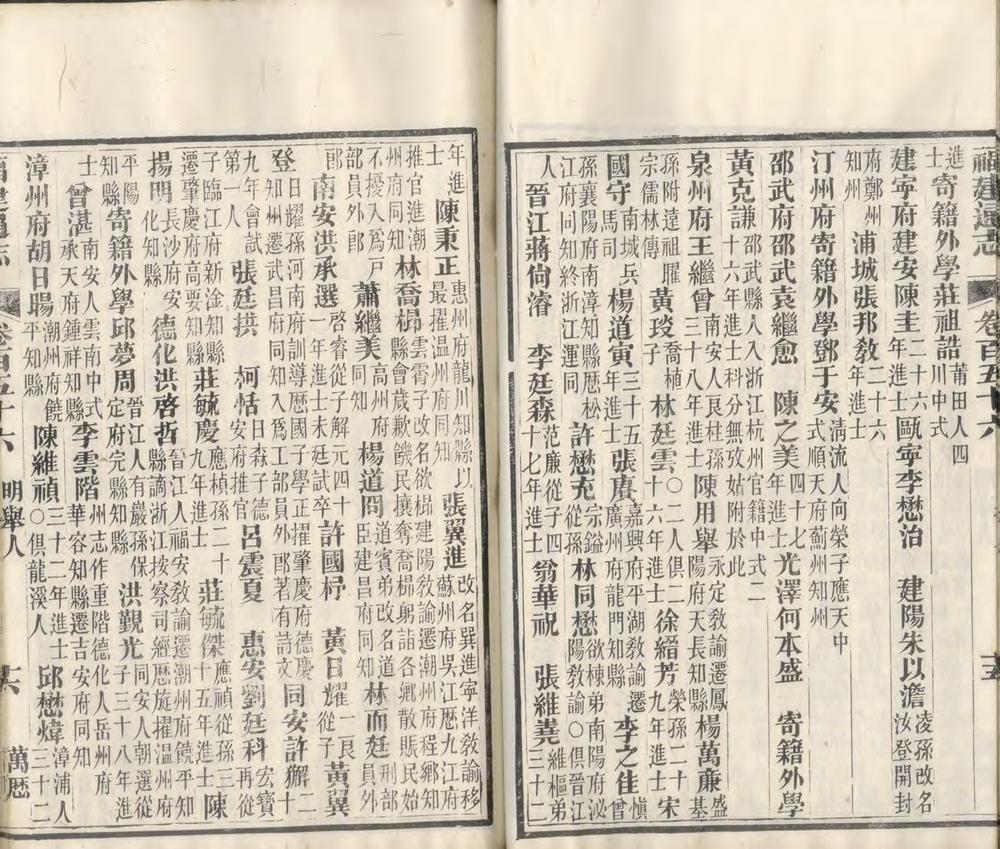 福建通志 卷百五十六 十五
進士 寄籍外學莊祖誥 莆田人四川中式
建寧府建安陳圭 二十六年進士 甌寧李懋治 建陽朱以澹 凌孫改名汝登開封
府鄭州知州 浦城張邦敎 二十六年進士
汀州府寄籍外學鄧于安 淸流人向榮子應天中式順天府薊州知州
邵武府邵武袁繼愈 陳之美 四十七年進士 光澤何本盛 寄籍外學
黃克謙 邵武縣人入浙江杭州官籍中式二十六年進士科分無攷姑附於此
泉州府王繼曾 南安人艮柱孫三十八年進士 陳用舉 永定敎諭遷鳳陽府天長知縣 楊萬廉 盛基
孫附達祖臞宗儒林傳 黃琰 喬植子 林廷雲 ○二人俱二十六年進士 徐縉芳 榮孫二十九年進士 宋
國守 南城兵馬司 楊道寅 三十五年進士 張賡 嘉興府平湖敎諭遷廣州府龍門知縣 李之佳 愼曾
孫襄陽府南漳知縣歷松江府同知終浙江運同 許懋充 宗鎰從孫 林同懋 欲棟弟南陽府泌陽敎諭○俱晉江
人 晉江蔣尙濬 李廷森 范廉從子四十七年進士 翁華祝 張維堯 維樞弟三十二
年進士 陳秉正 惠州府龍川知縣以最擢温州府同知 張翼進 改名巽進寧洋敎諭移蘇州府吳江歷九江府
推官進潮州府同知 林喬楊 雲霄子改名欲楫建陽敎諭遷潮州府程鄉知縣會歲歉饑民攘奪喬楊躬詣各鄉散賑民始
不擾入爲戸部員外郎 蕭繼美 高州府同知 楊道問 道賓弟改名道臣建昌府同知 林而廷 刑部員外
郎 南安洪承選 啓睿從子解元四十一年進士未廷試卒 許國杼 黃日耀 艮二從子 黃翼
登 日耀孫河南府訓導歷國子學正擢肇慶府德慶知州遷武昌府同知入爲工部員外郎著有詩文 同安許獬 二十
九年會試第一人 張廷拱 柯恬 日森子德安府推官 呂震夏 惠安劉廷科 宏寶再從
子臨江府新淦知縣遷肇慶府高要知縣 莊毓慶 應楨孫二十九年進士 莊毓傑 應禎從孫三十五年進士 陳
揚明 長沙府安化知縣 德化洪啓哲 晉江人福安敎諭遷潮州府饒平知縣謫浙江按察司經歷旋擢温州府
平陽知縣 寄籍外學邱夢周 晉江人有嚴孫保定府完縣知縣 洪覲光 同安人朝選從子三十八年進
士 曾湛 南安人雲南中式承天府鍾祥知縣 李雲階 州志作重階德化人岳州府華容知縣遷吉安府同知
漳州府胡日暘 潮州府饒平知縣 陳維禎 三十二年進士○俱龍溪人 邱懋煒 漳浦人三十二
福建通志 卷百五十六 明舉人 十六 萬厯